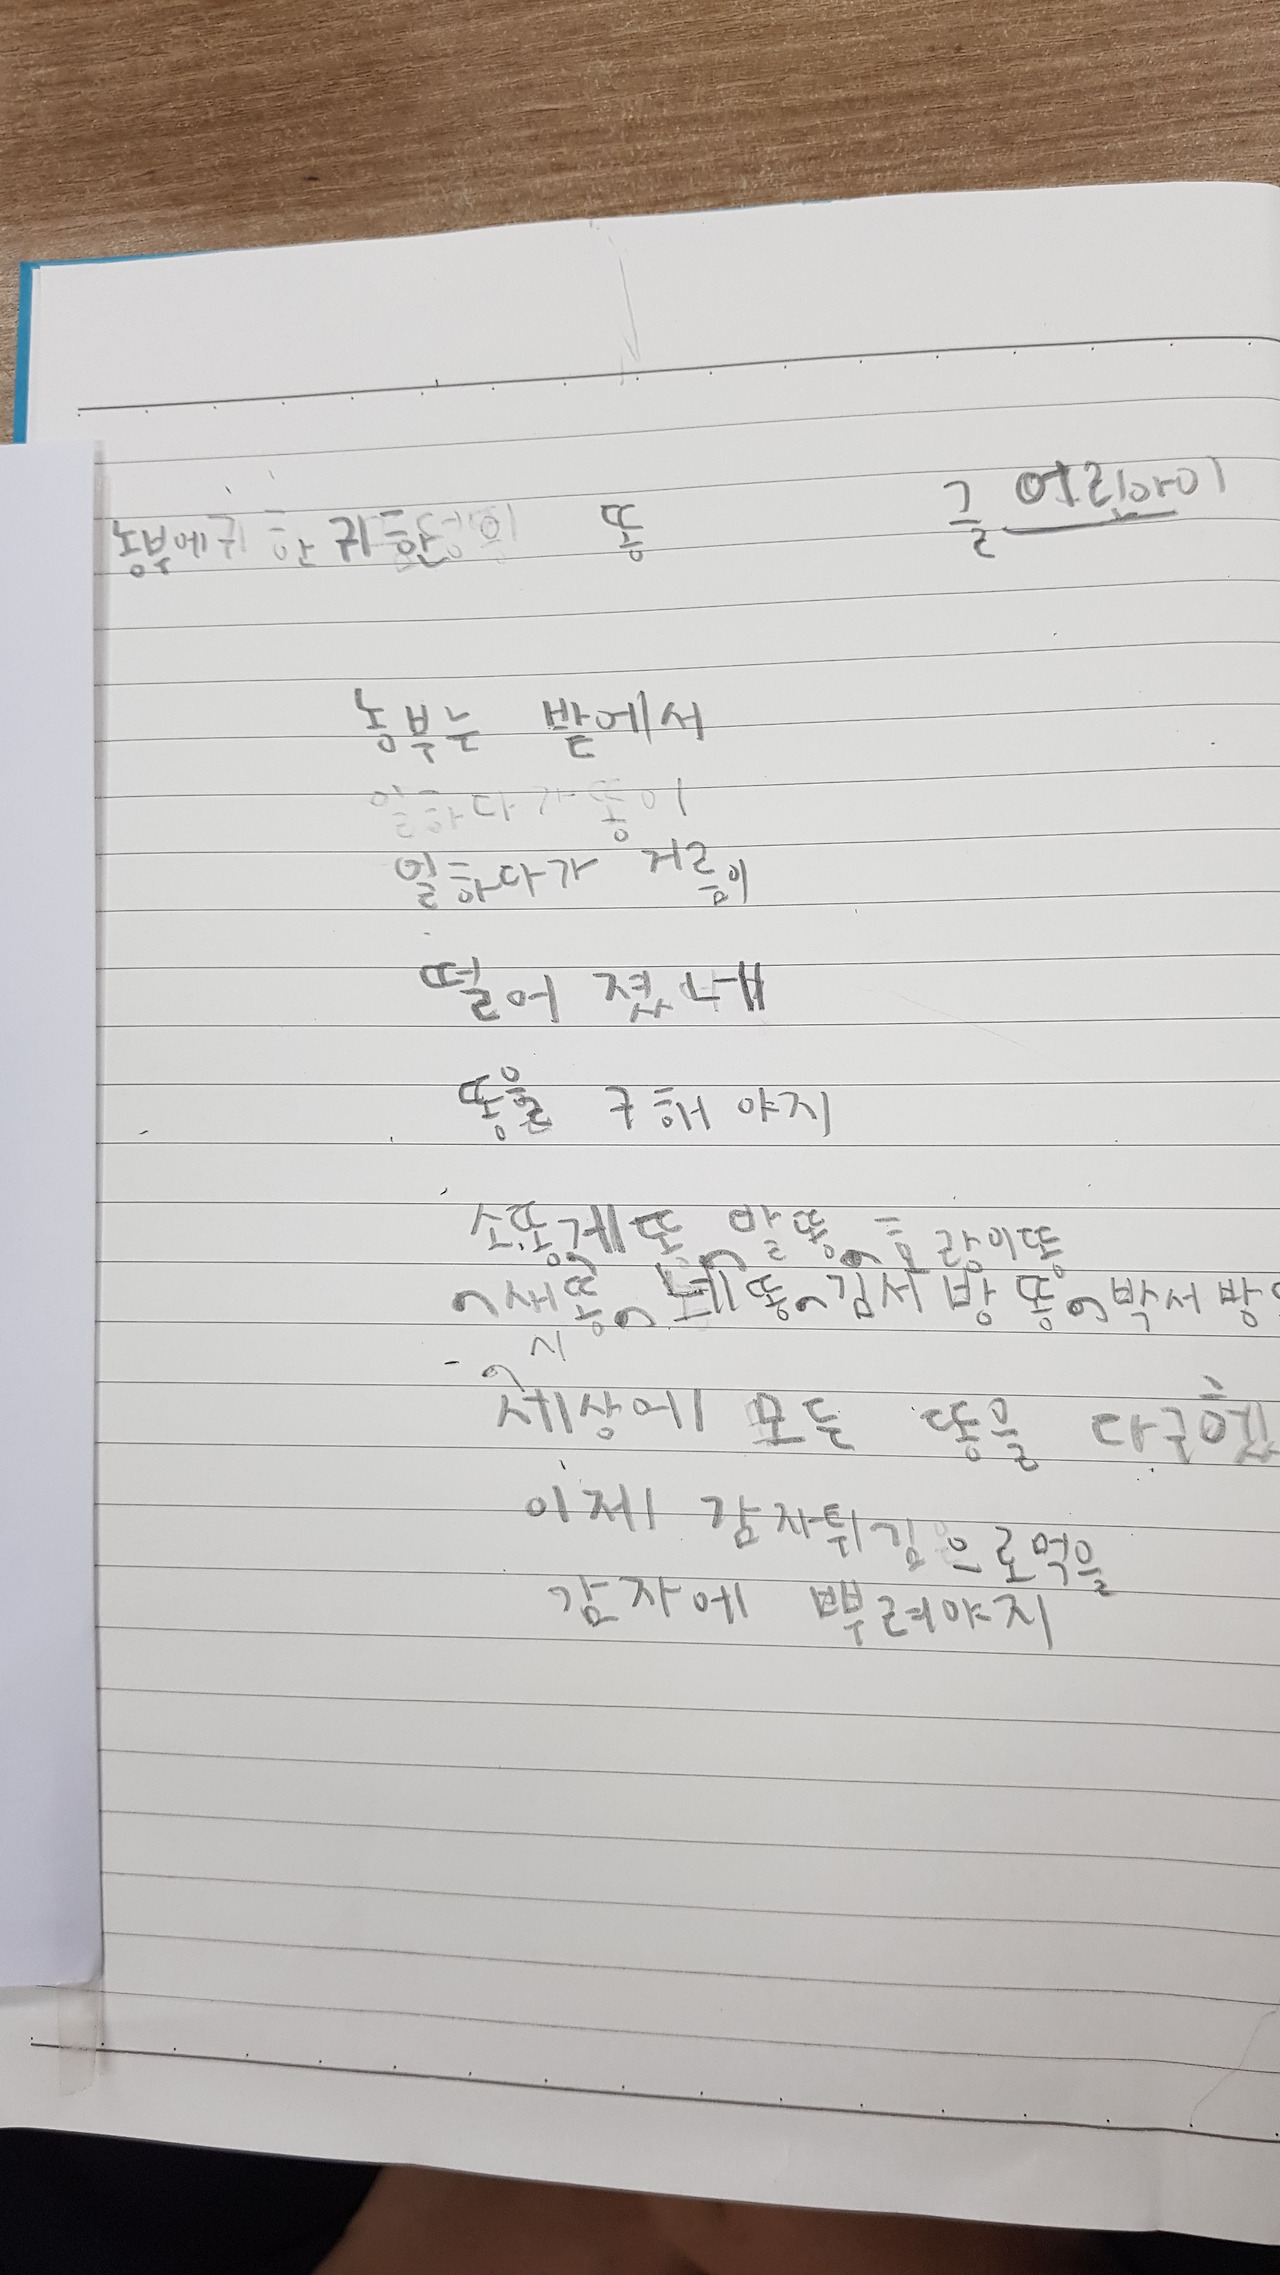 농부에 귀한 귀한 똥
글 어린아이
농부는 밭에서
일하다가 똥이
일하다가 거름이
떨어 졌네
똥을 구해 야지
소똥 게똥 말똥 호랑이똥
새똥 네똥 김서방 똥 박서방
세상에 모든 똥을 다구했
이제 감자튀김으로먹을
감자에 뿌려야지